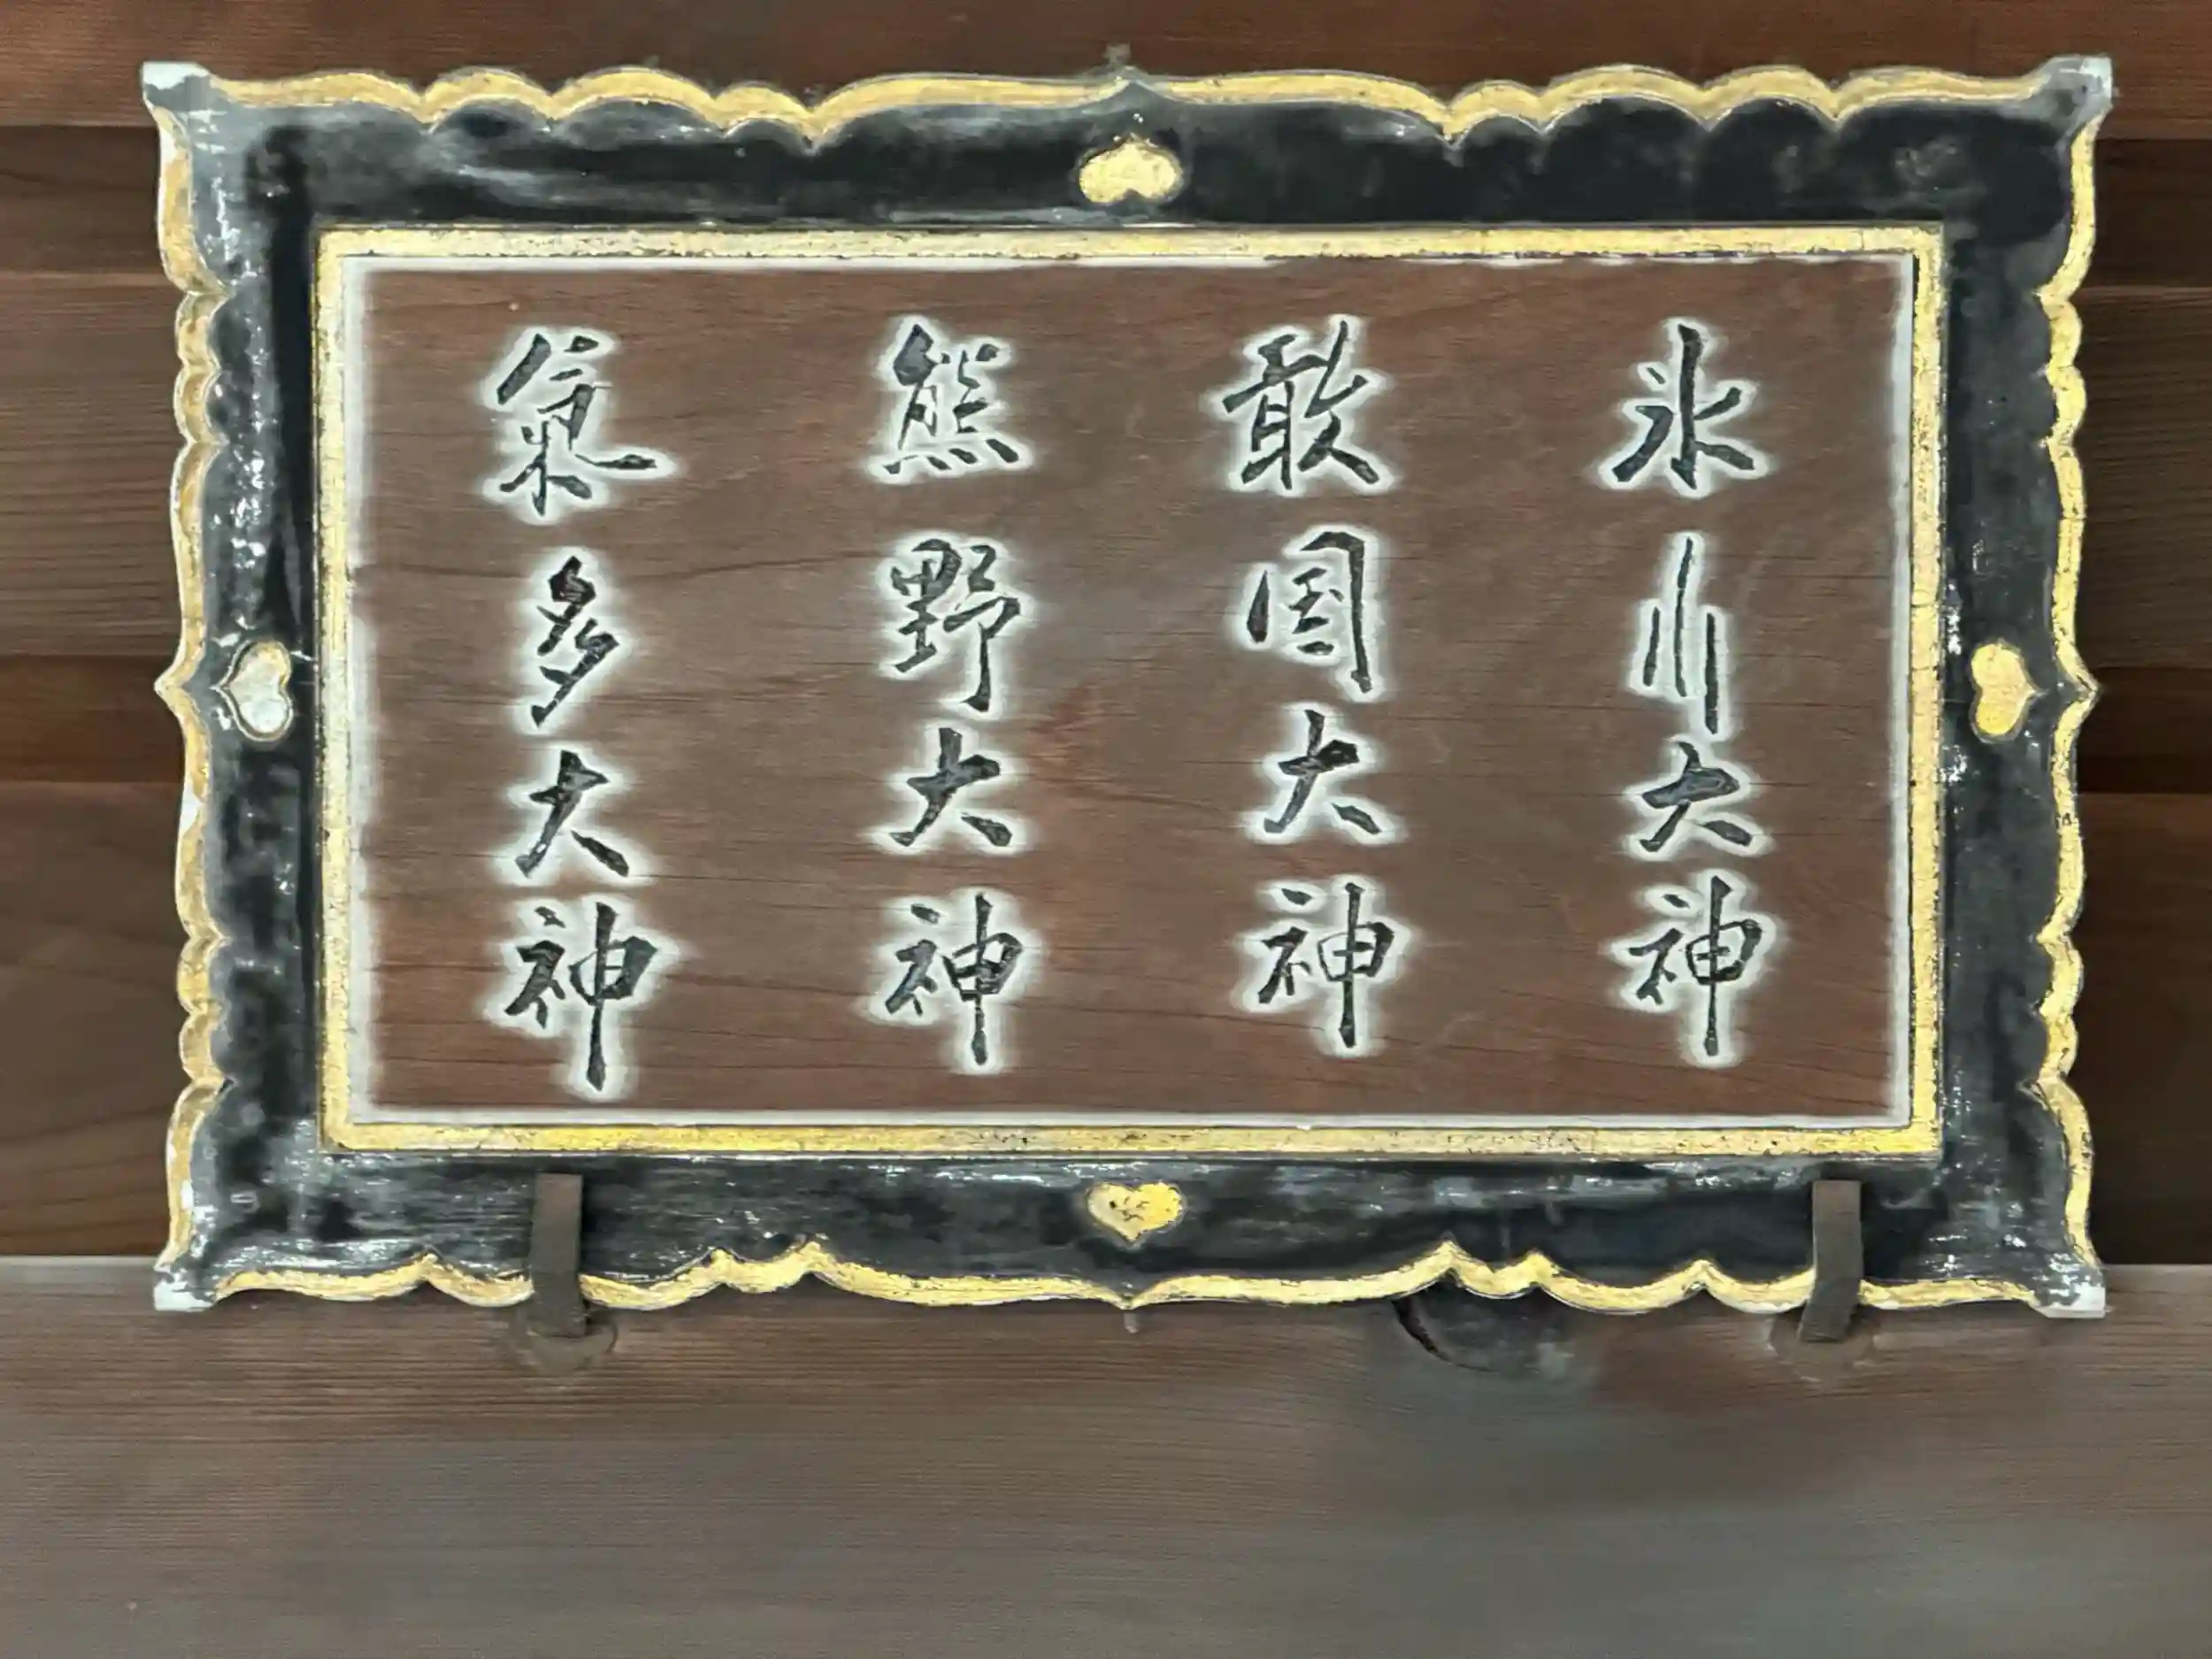 氷川大神
敢国大神
熊野大神
氣多大神